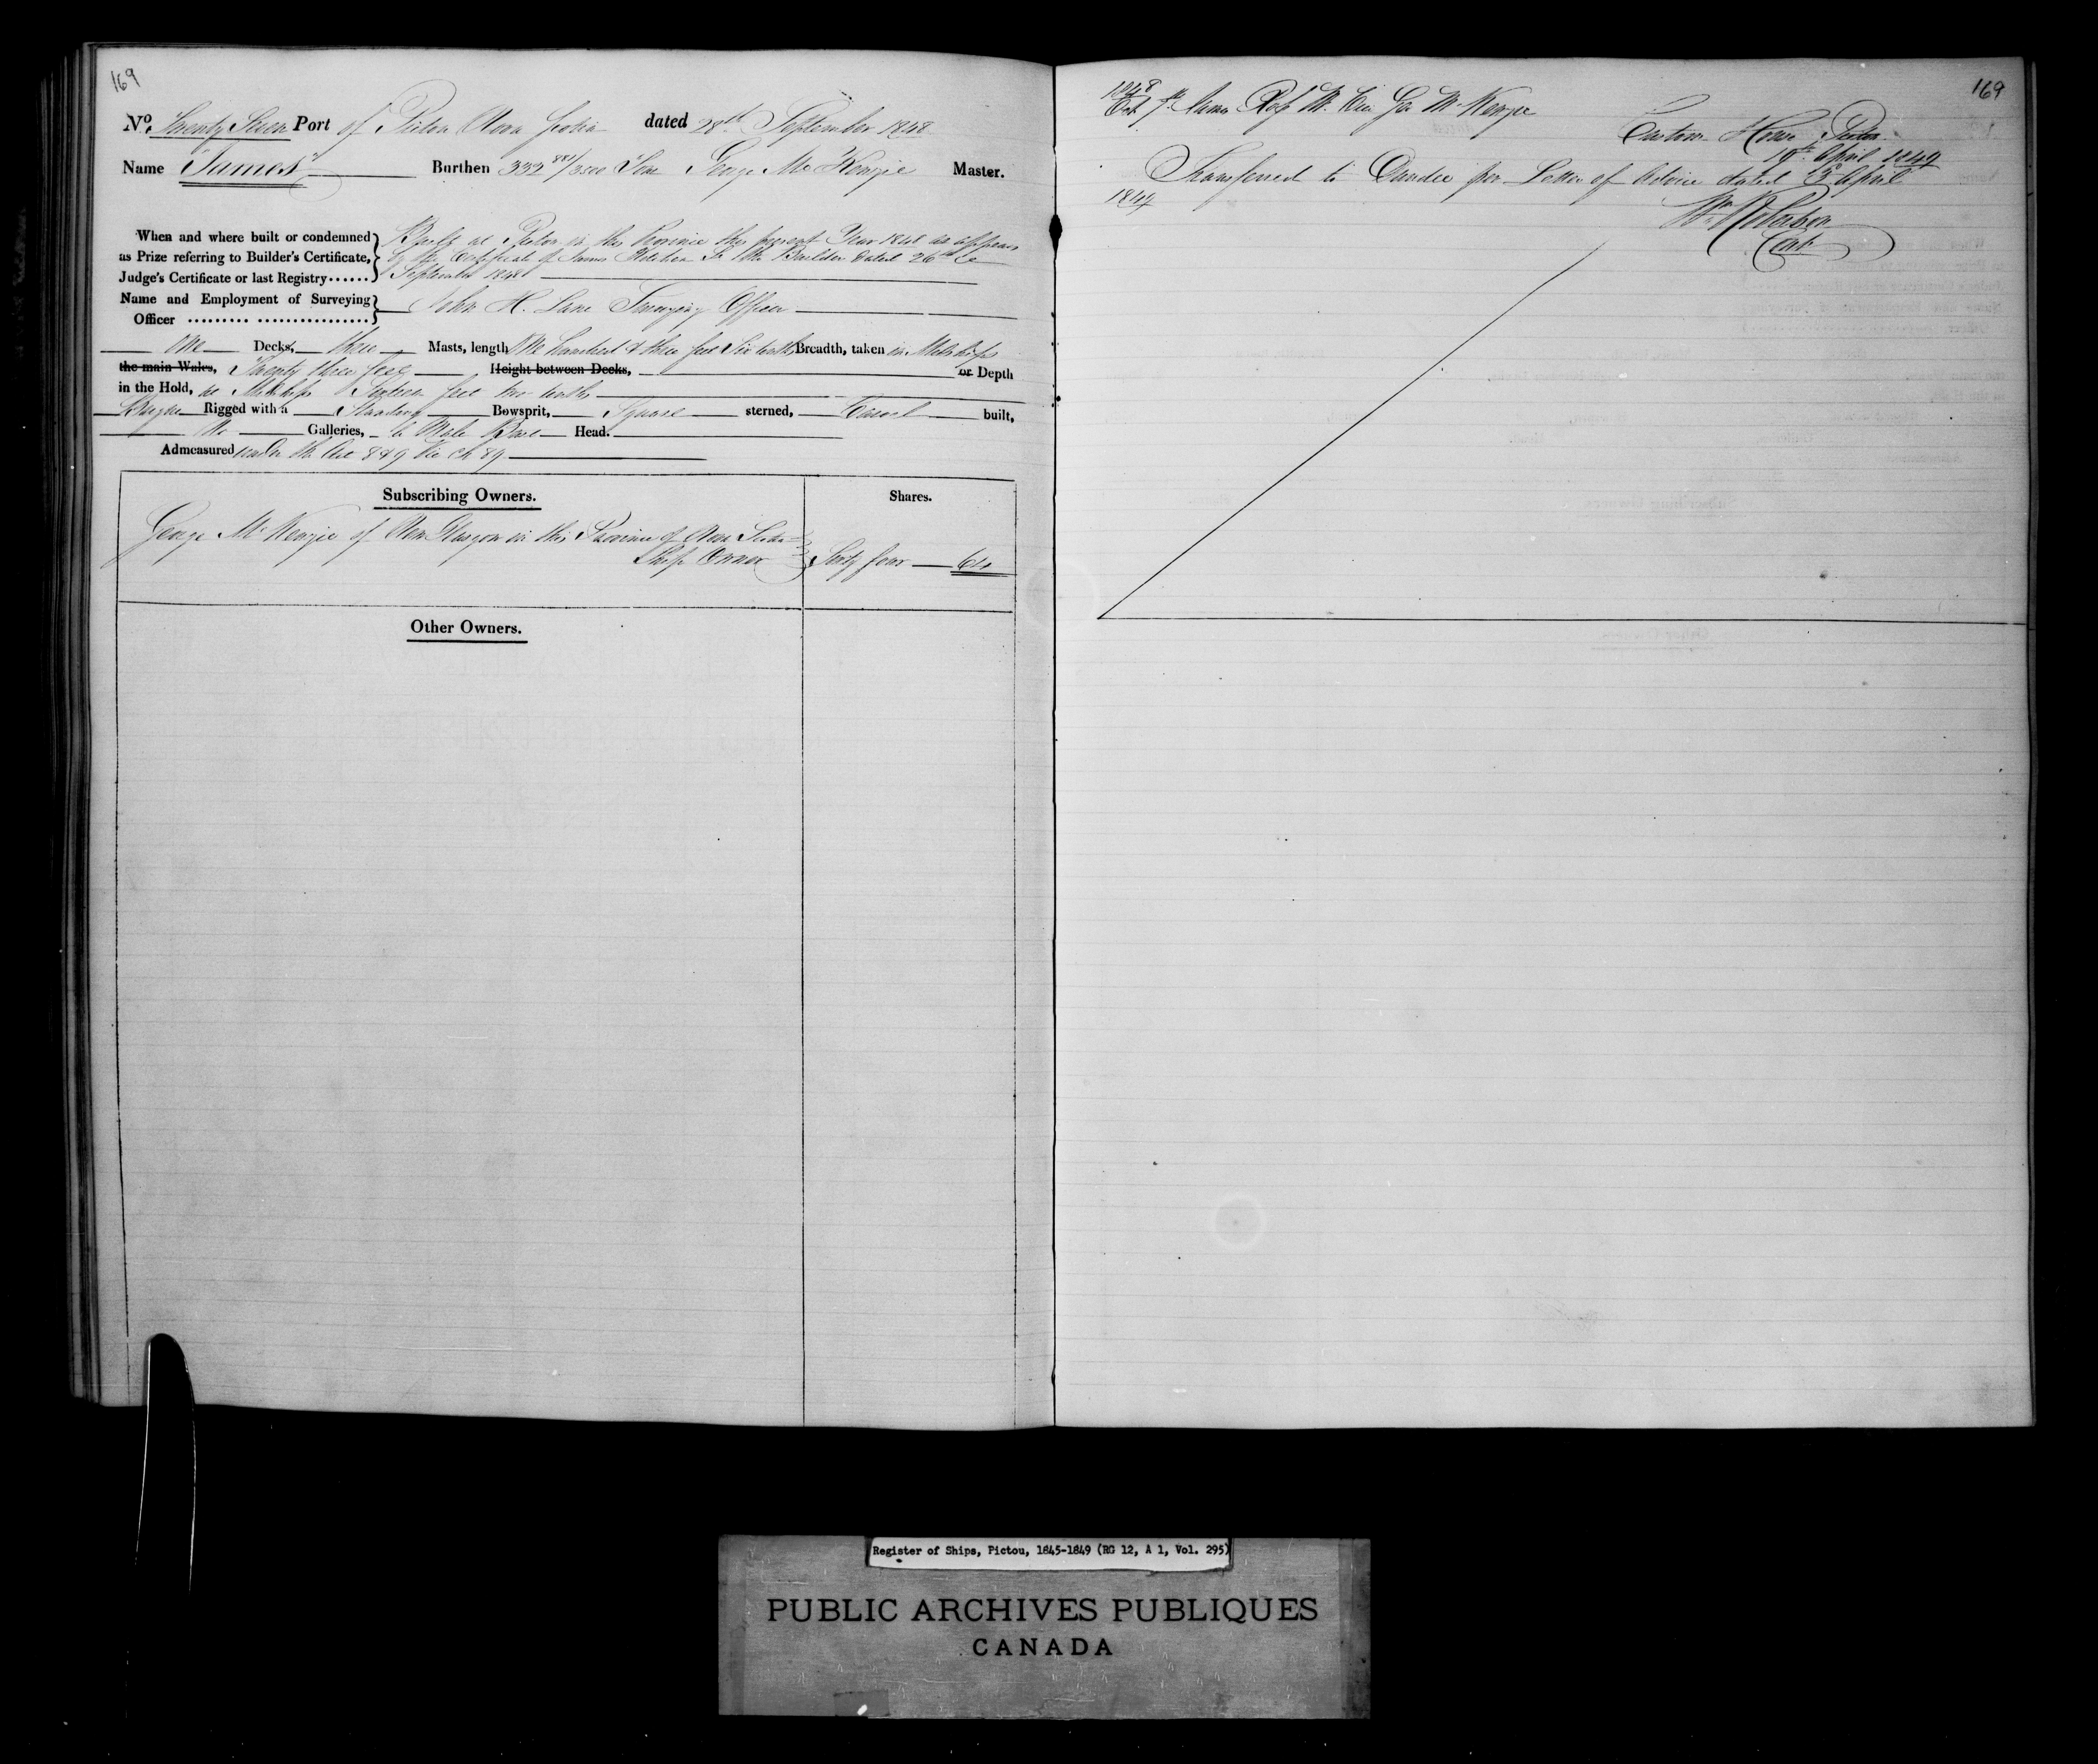 169
No. Twenty Seven Port of Pictou Nova Scotia dated 28th September 1848
Name "James" Burthen 332 881/3500 Tons George McKenzie Master.
When and where built or condemned as Prize referring to Builder's Certificate, Judge's Certificate or last Registry......
Built at Pictou in this Province this present Year 1848 as appears
by the Certificate of James the Builder dated 26th
September 1848
Name and Employment of Surveying Officer ......... ................
John H. Lane Surveying Officer
One Decks, three Masts, length One hundred & three feet Six tenths Breadth, taken in Midships
the main Wales, Twenty three feet Height between Decks, or Depth
in the Hold, at Midships feet two tenths
Rigged with a Standing Bowsprit, Square sterned, Carvel built,
No Galleries, a Male Bust Head.
Admeasured under the Act 8 & 9 Vic Ch 89
Subscribing Owners. Shares.
George McKenzie of New Glasgow in this Province of Nova Scotia
Ship Owner Sixty four 64
Other Owners.
169
1848
Oct Geo McKenzie
Custom House Pictou
19th April 1849
Transferred to Dundee per Letter of Advice dated April
1849
Wm Robertson
Register of Ships, Pictou, 1845-1849 (RG 12, A 1, Vol. 295)
PUBLIC ARCHIVES PUBLIQUES
CANADA